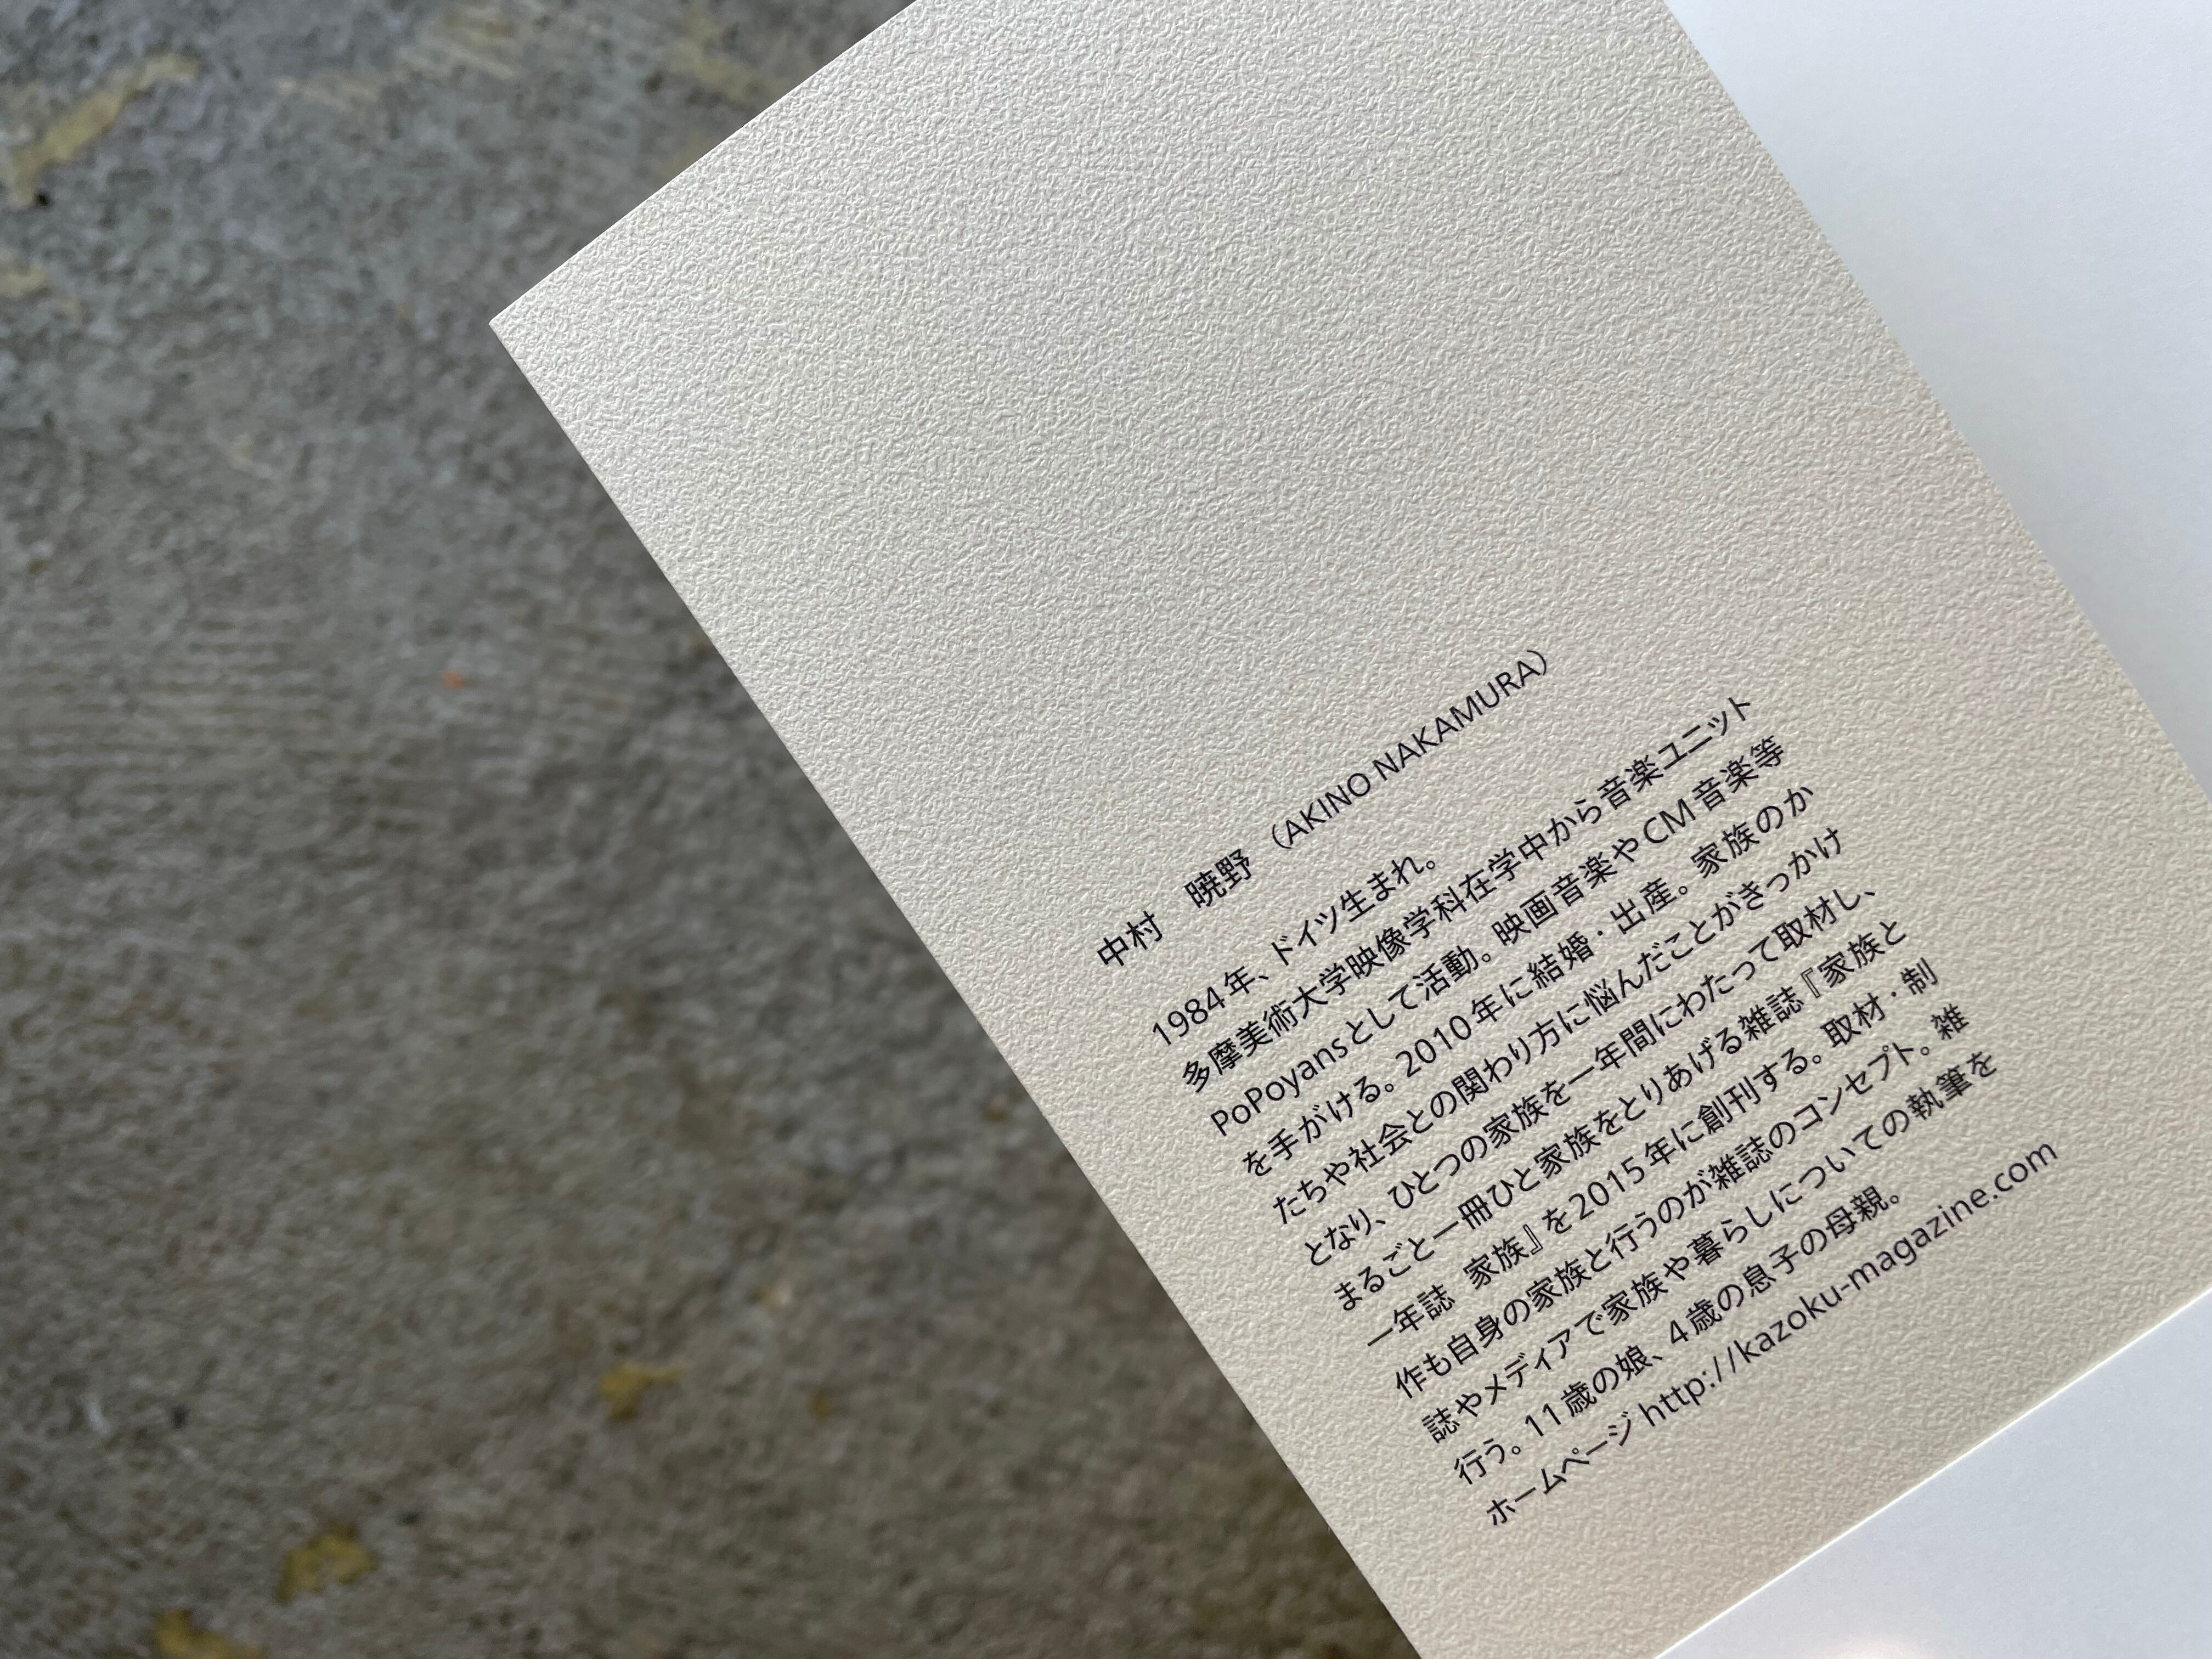 中村　暁野（AKINO NAKAMURA）
1984年、ドイツ生まれ。
多摩美術大学映像学科在学中から音楽ユニット
PoPoyansとして活動。映画音楽やCM音楽等
を手がける。2010年に結婚・出産。家族のか
たちや社会との関わり方に悩んだことがきっかけ
となり、ひとつの家族を一年間にわたって取材し、
まるごと一冊ひと家族をとりあげる雑誌『家族と
一年誌 家族』を2015年に創刊する。取材・制
作も自身の家族と行うのが雑誌のコンセプト。雑
誌やメディアで家族や暮らしについての執筆を
行う。11歳の娘、4歳の息子の母親。
ホームページ http://kazoku-magazine.com